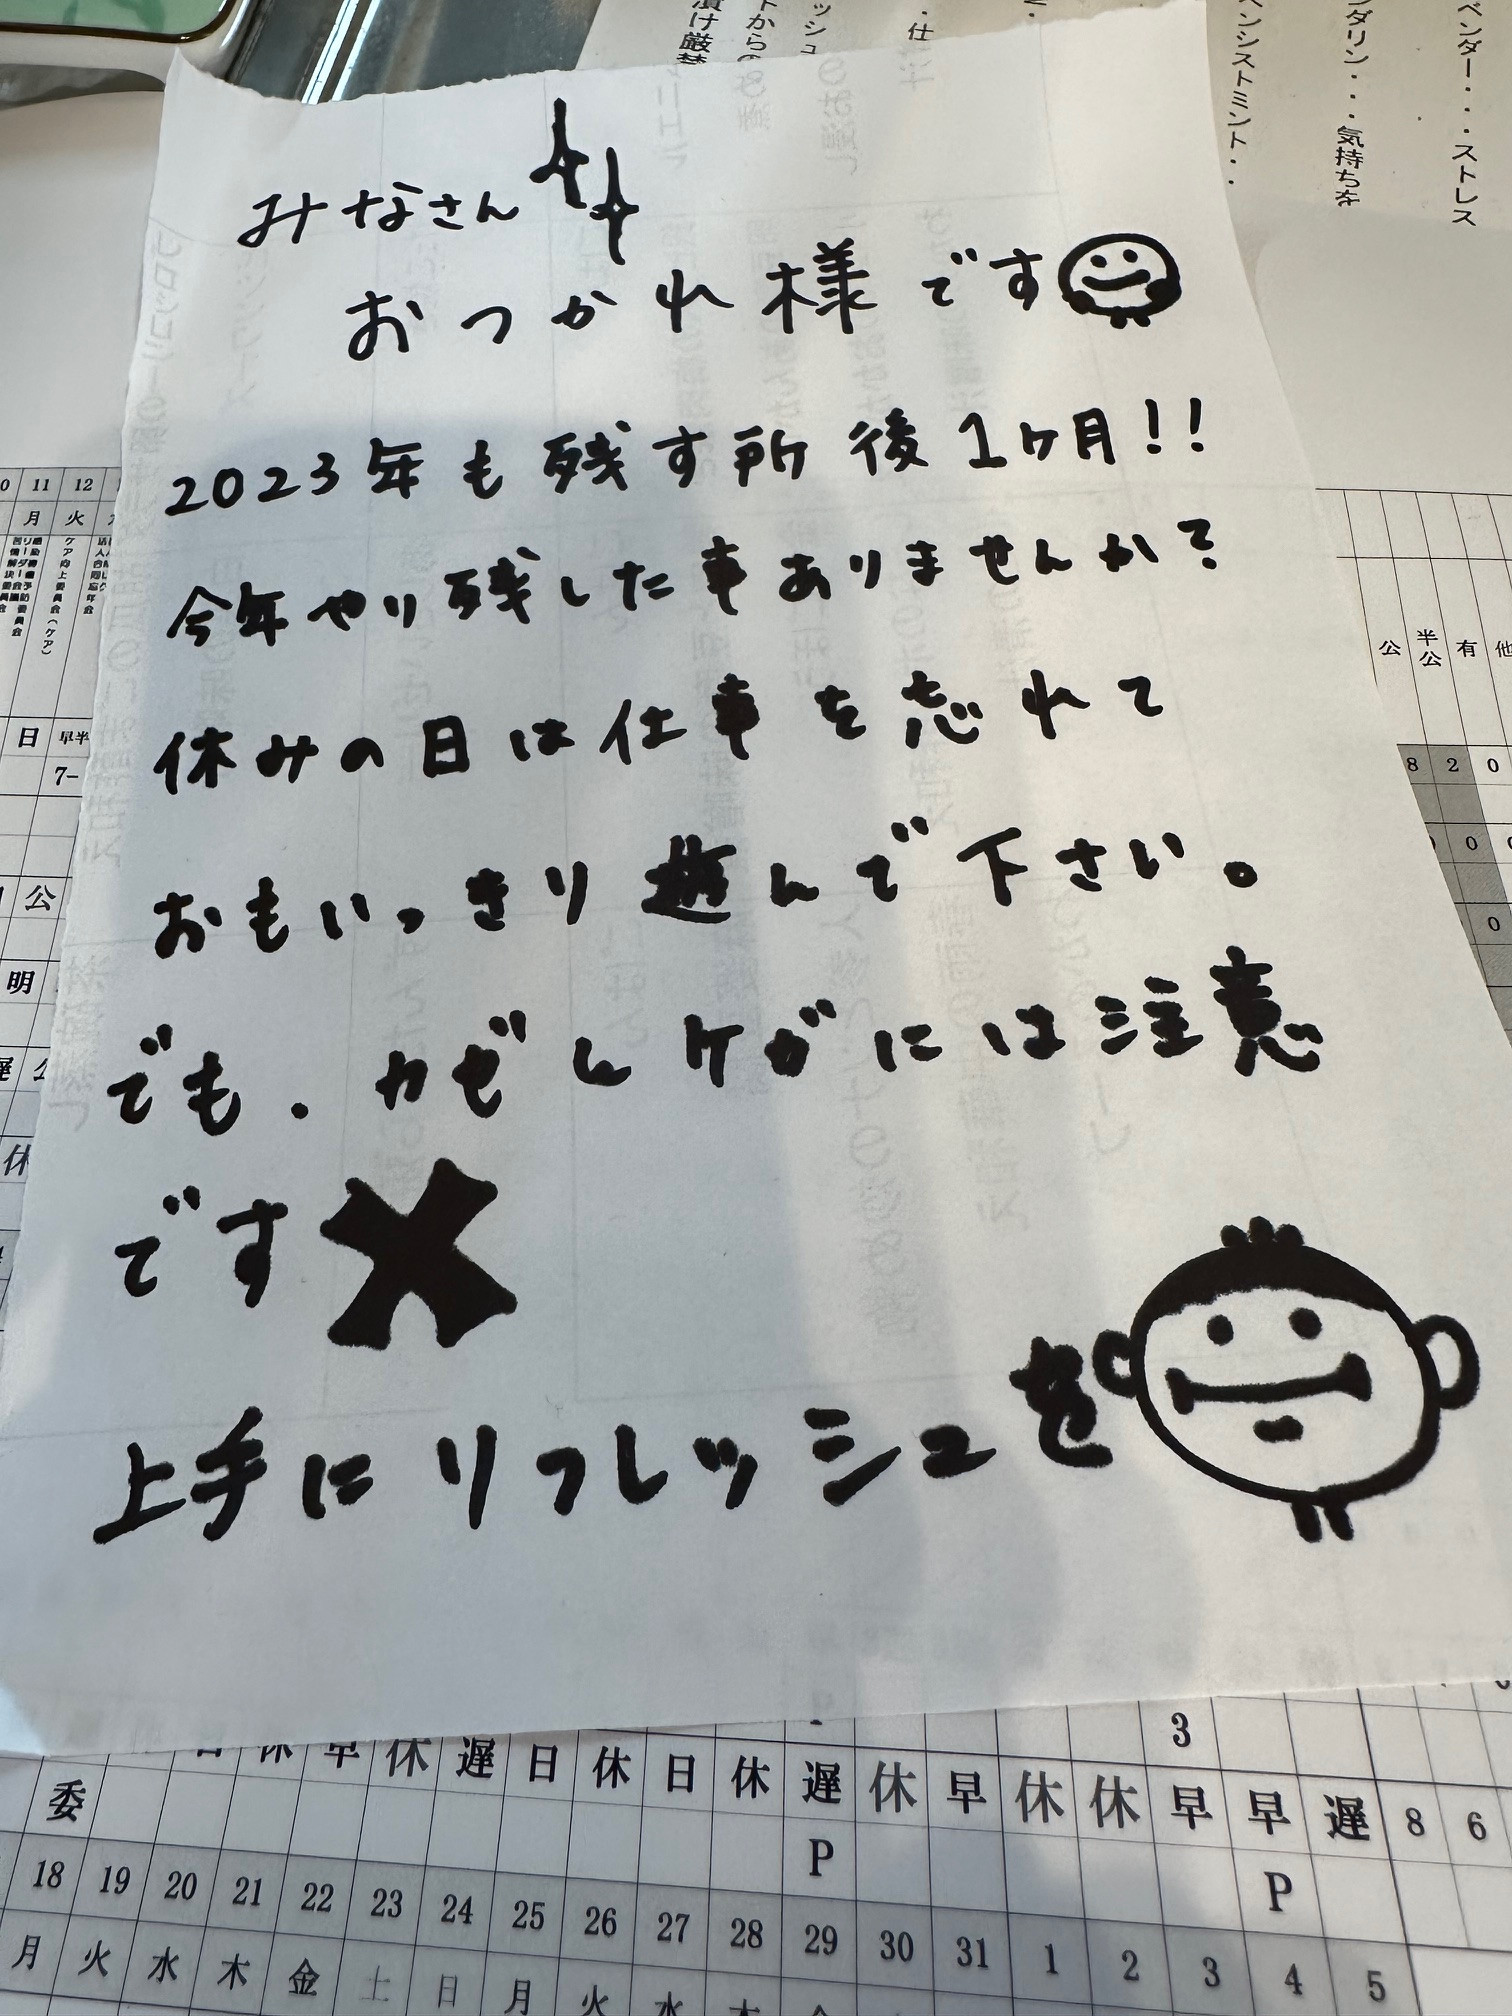 ベンダー・・・ストレス
ダリン・・・気持ちを
ペンシストミント・・
みなさん
おつかれ様です
2023年も残す所後1ヶ月!!
今年やり残した事ありませんか?
休みの日は仕事を忘れて
おもいっきり遊んで下さい。
でも.カゼとケガには注意
です
上手にリフレッシュを
11 12
月 火
ケア向上委員会(ケア)
日 早半
7-
公
明
遅 公
休
公 半公 有 他
8 2 0
0 0
0
3
日 休 早 休 遅 日 休 日 休 遅 休 早 休 休 早 早 遅 8 6
委
P P
18 19 20 21 22 23 24 25 26 27 28 29 30 31 1 2 3 4 5
月 火 水 木 金 土 日 月 火 水 木 金